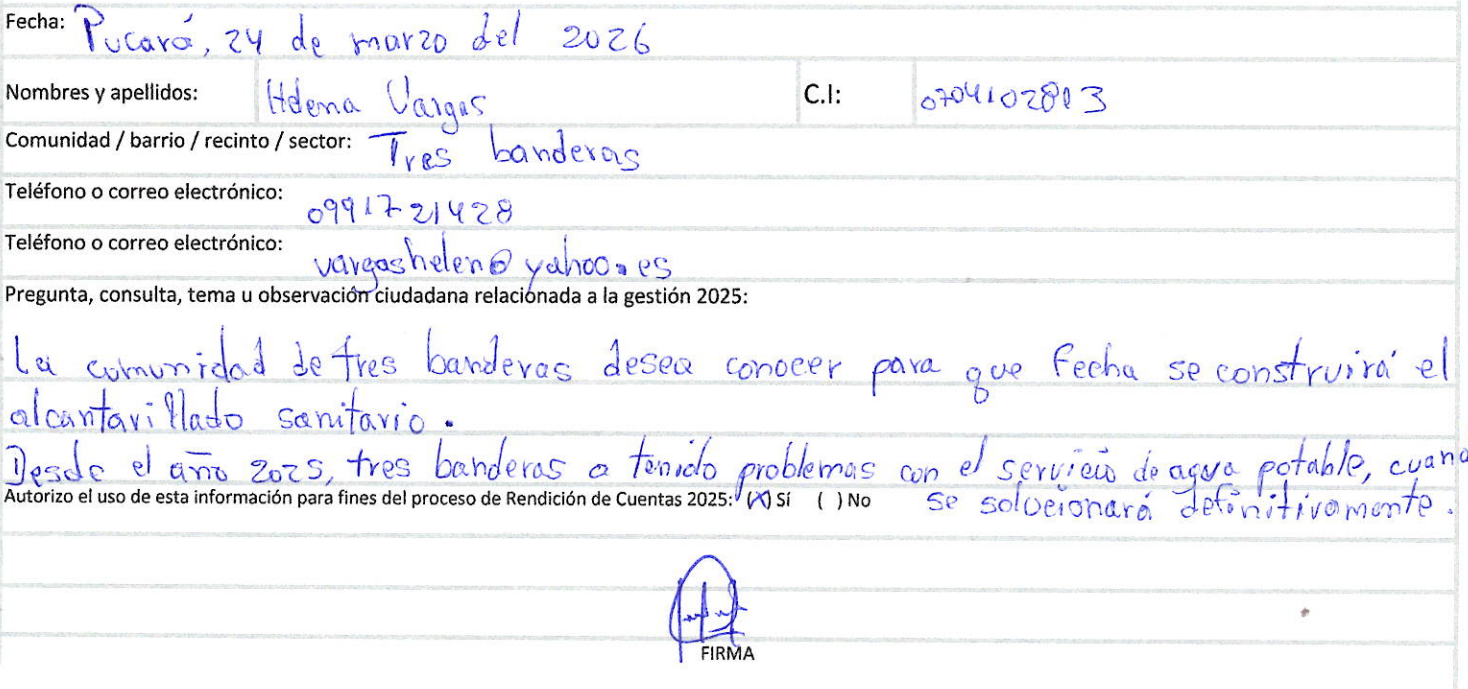 Fecha: Pucará, 24 de marzo del 2026
Nombres y apellidos: Vargas C.I: 0704102813
Comunidad / barrio / recinto / sector: Tres banderas
Teléfono o correo electrónico: 0991721428
Teléfono o correo electrónico: vargashelen@yahoo.es
Pregunta, consulta, tema u observación ciudadana relacionada a la gestión 2025:
La comunidad de tres banderas desea conocer para que fecha se construirá el
alcantarillado sanitario.
Desde el año 2025, tres banderas a tenido problemas con el servicio de agua potable, cuand
Autorizo el uso de esta información para fines del proceso de Rendición de Cuentas 2025: (X) Sí ( ) No se solucionará definitivamente.
FIRMA